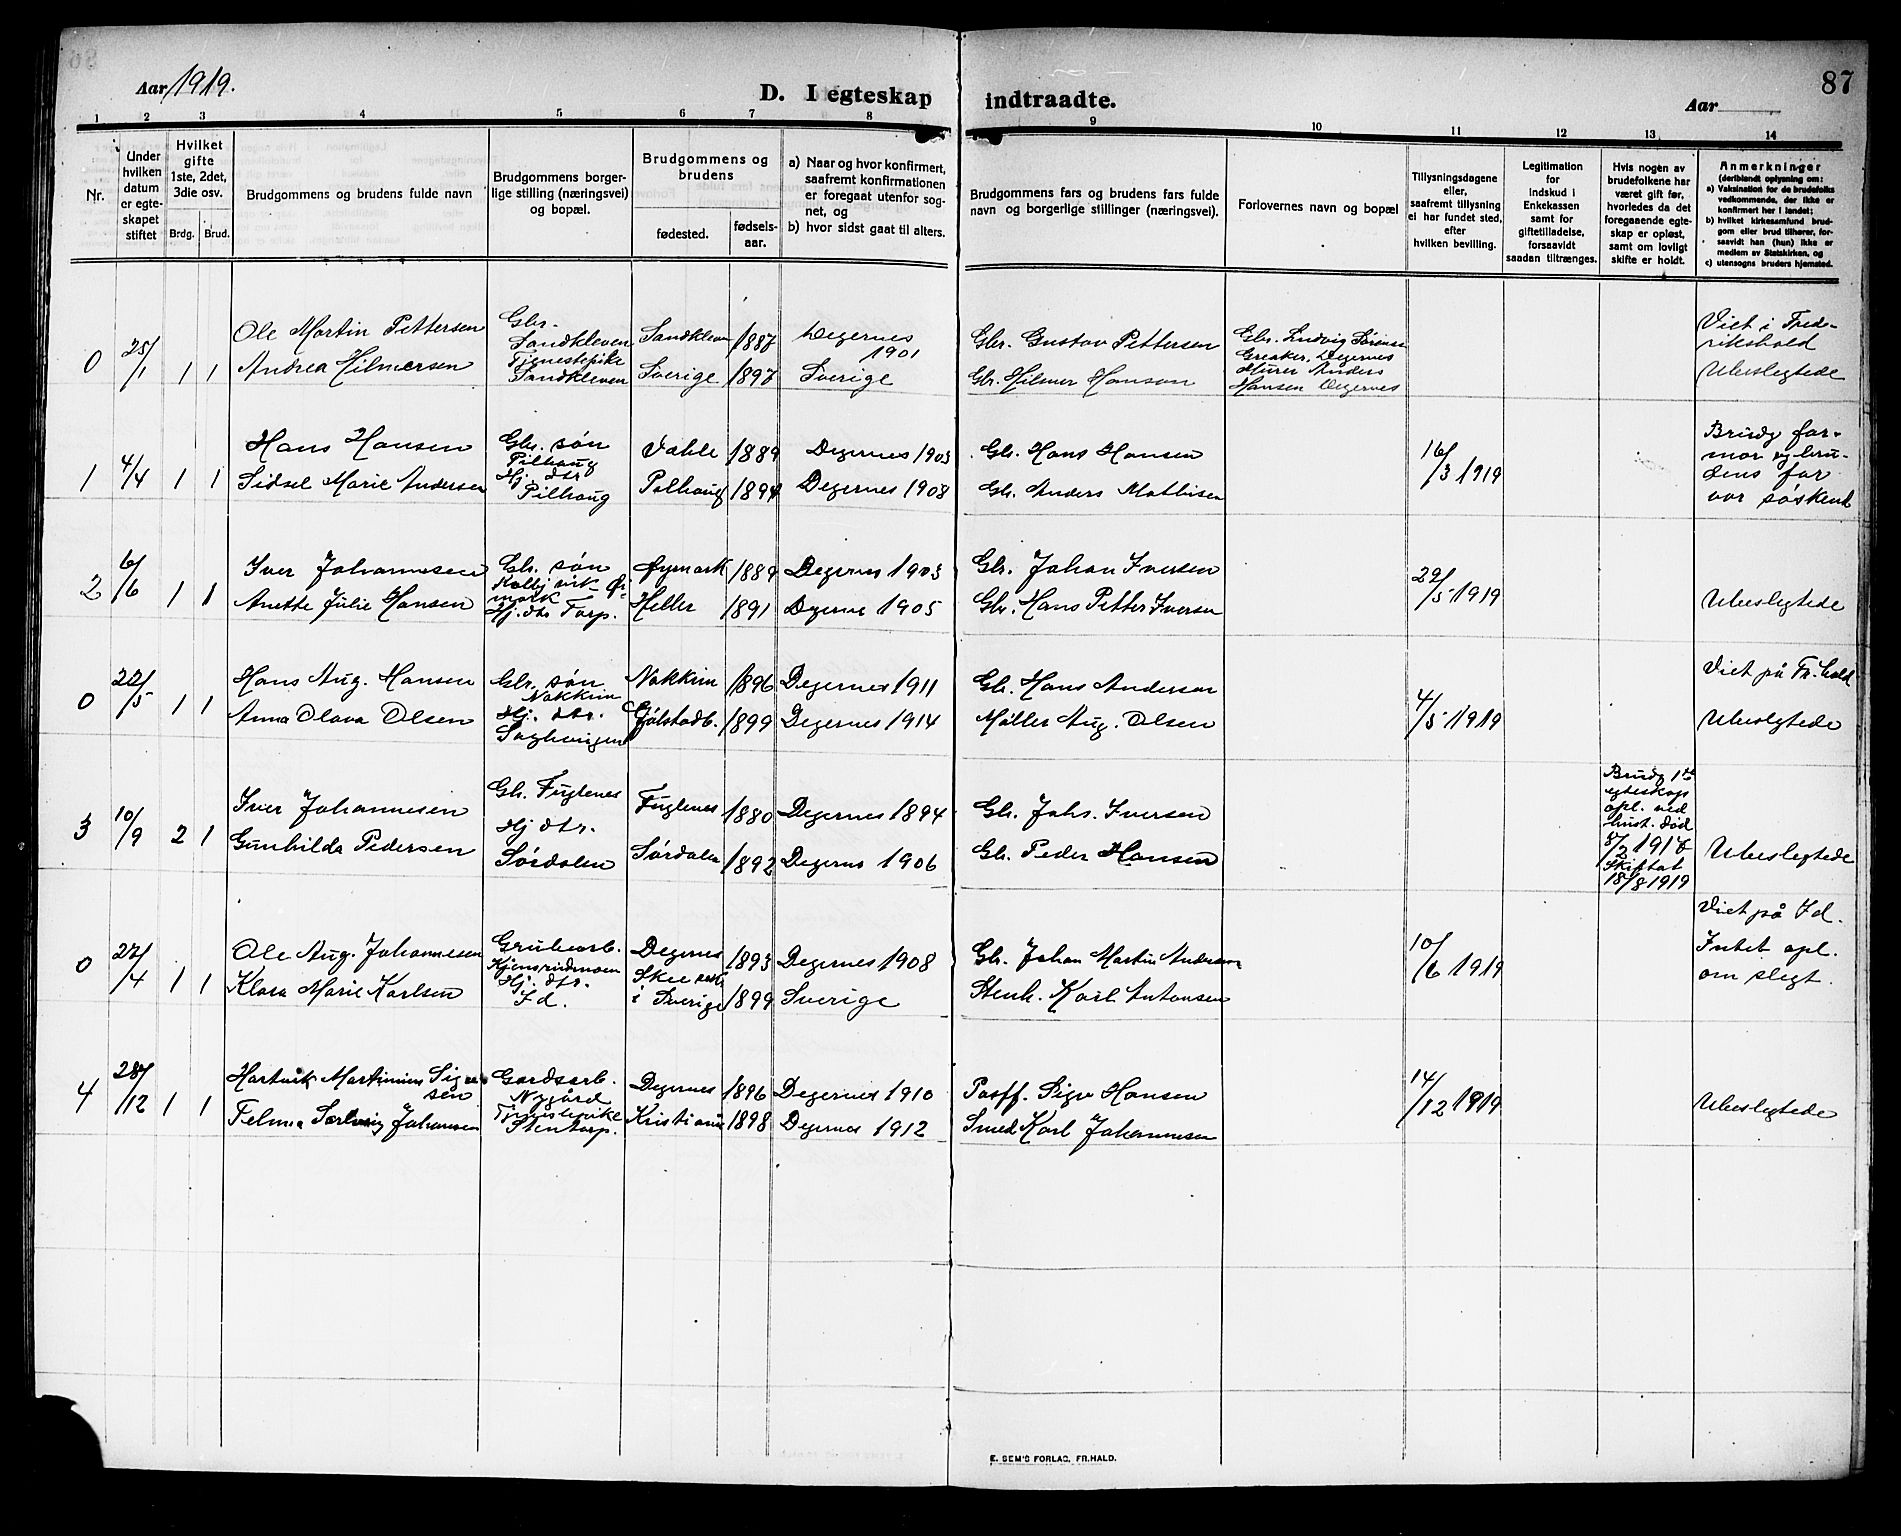 Aar 1919.
D. I egteskap indtraadte.
Aar
87
1 2 3 4 5 6 7 8 9 10 11 12 13 14
Nr.
Under hvilken datum er egteskapet stiftet
Hvilket gifte 1ste, 2det, 3die osv.
Brdg. Brud.
Brudgommens og brudens fulde navn
Brudgommens borgerlige stilling (næringsvei) og bopæl.
Brudgommens og brudens
fødested.
fødselsaar.
a) Naar og hvor konfirmert, saafremt konfirmationen er foregaat utenfor sognet, og
b) hvor sidst gaat til alters.
Brudgommens fars og brudens fars fulde navn og borgerlige stillinger (næringsvei).
Forlovernes navn og bopæl
Tillysningsdagene eller, saafremt tillysning ei har fundet sted, efter hvilken bevilling.
Legitimation for indskud i Enkekassen samt for giftetilladelse, forsaavidt saadan tiltrænges.
Hvis nogen av brudefolkene har været gift før, hvorledes da det foregaaende egteskap er opløst, samt om lovligt skifte er holdt.
Anmerkninger
(deriblandt oplysning om:
a) Vaksination for de brudefolks vedkommende, der ikke er konfirmert her i landet;
b) hvilket kirkesamfund brudgom eller brud tilhører, forsaavidt han (hun) ikke er medlem av Statskirken, og
c) utensogns bruders hjemsted.
0 25/1 1 1
Ole Martin Pettersen
Andrea Hilmersen
Gbr. Sandkleven
Tjenestepike Sandkleven
Sandkleven 1887
Sverige 1897
Degernes 1901
Sverige
Gbr. Gustav Pettersen
Gbr. Hilmer Hanson
Gbr. Ludvig Sørensen
Greaker, Degernes
Murer Anders
Hansen Degernes
Viet i Fredrikshald
Ubeslegtede
1 4/4 1 1
Hans Hansen
Sidsel Marie Andersen
Gbr. søn
Pilhaug
Hj. dtr
Pilhaug
1889
Pilhaug 1894
Degernes 1903
Degernes 1908
Gbr. Hans Hansen
Gbr. Anders Mathisen
16/3 1919
Brudg farmor og brudens far var søskend
2 6/6 1 1
Iver Johannesen
Anette Julie Hansen
Gbr. søn
Kolbjørvik Ømark
Hj. dtr Torp.
Øymark 1889
Heller 1891
Degernes 1903
Degernes 1905
Gbr. Johan Iversen
Gbr. Hans Petter Iversen
22/5 1919
Ubeslegtede
0 22/5 1 1
Hans Aug. Hansen
Anna Olava Olsen
Gbr. søn
Nakkim
Hj. dtr.
Nakkim 1896
Gjølstadb. 1899
Degernes 1911
Degernes 1914
Gbr. Hans Anderson
Møller Aug. Olsen
4/5 1919
Viet på Fr.hald
Ubeslegtede
3 10/9 2 1
Iver Johannesen
Gunhilda Pedersen
Gbr. Fuglenes
Hj dtr.
Sørdalen
Fuglenes 1880
Sørdalen 1892
Degernes 1894
Degernes 1906
Gbr. Johs. Iversen
Gbr. Peder Hansen
Brudg 1ste
egteskap
opl. ved
hust. død
8/2 1918
Skiftet
18/8 1919
Ubeslegtede
0 22/4 1 1
Ole Aug. Johannesen
Klara Marie Karlsen
Grubearb.
Hj. dtr.
Id.
Degernes 1893
Skee i Sverige 1899
Degernes 1908
Sverige
Gbr. Johan Martin Anderson
Stenh. Karl Antonsen
10/6 1919
Viet på Id.
Intet opl.
om slegt.
4 28/12 1 1
Hartvik Martinius Sigersen
Telma Solveig Johansen
Gardsarb.
Nygård
Tjenestepike
Stentorp.
Degernes 1896
Kristiania 1898
Degernes 1910
Degernes 1912
Hansen
Smed Karl Johannesen
14/12 1919
Ubeslegtede
E. SEM'S FORLAG, FR.HALD.